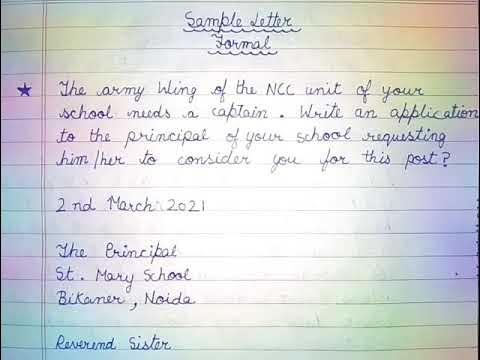 Sample Letter
Formal
★ The army Wing of the NCC unit of your
school needs a captain. Write an application
to the principal of your school requesting
him/her to consider you for this post?
2nd March 2021
The Principal
St. Mary School
Bikaner, Noida
Reverend Sister